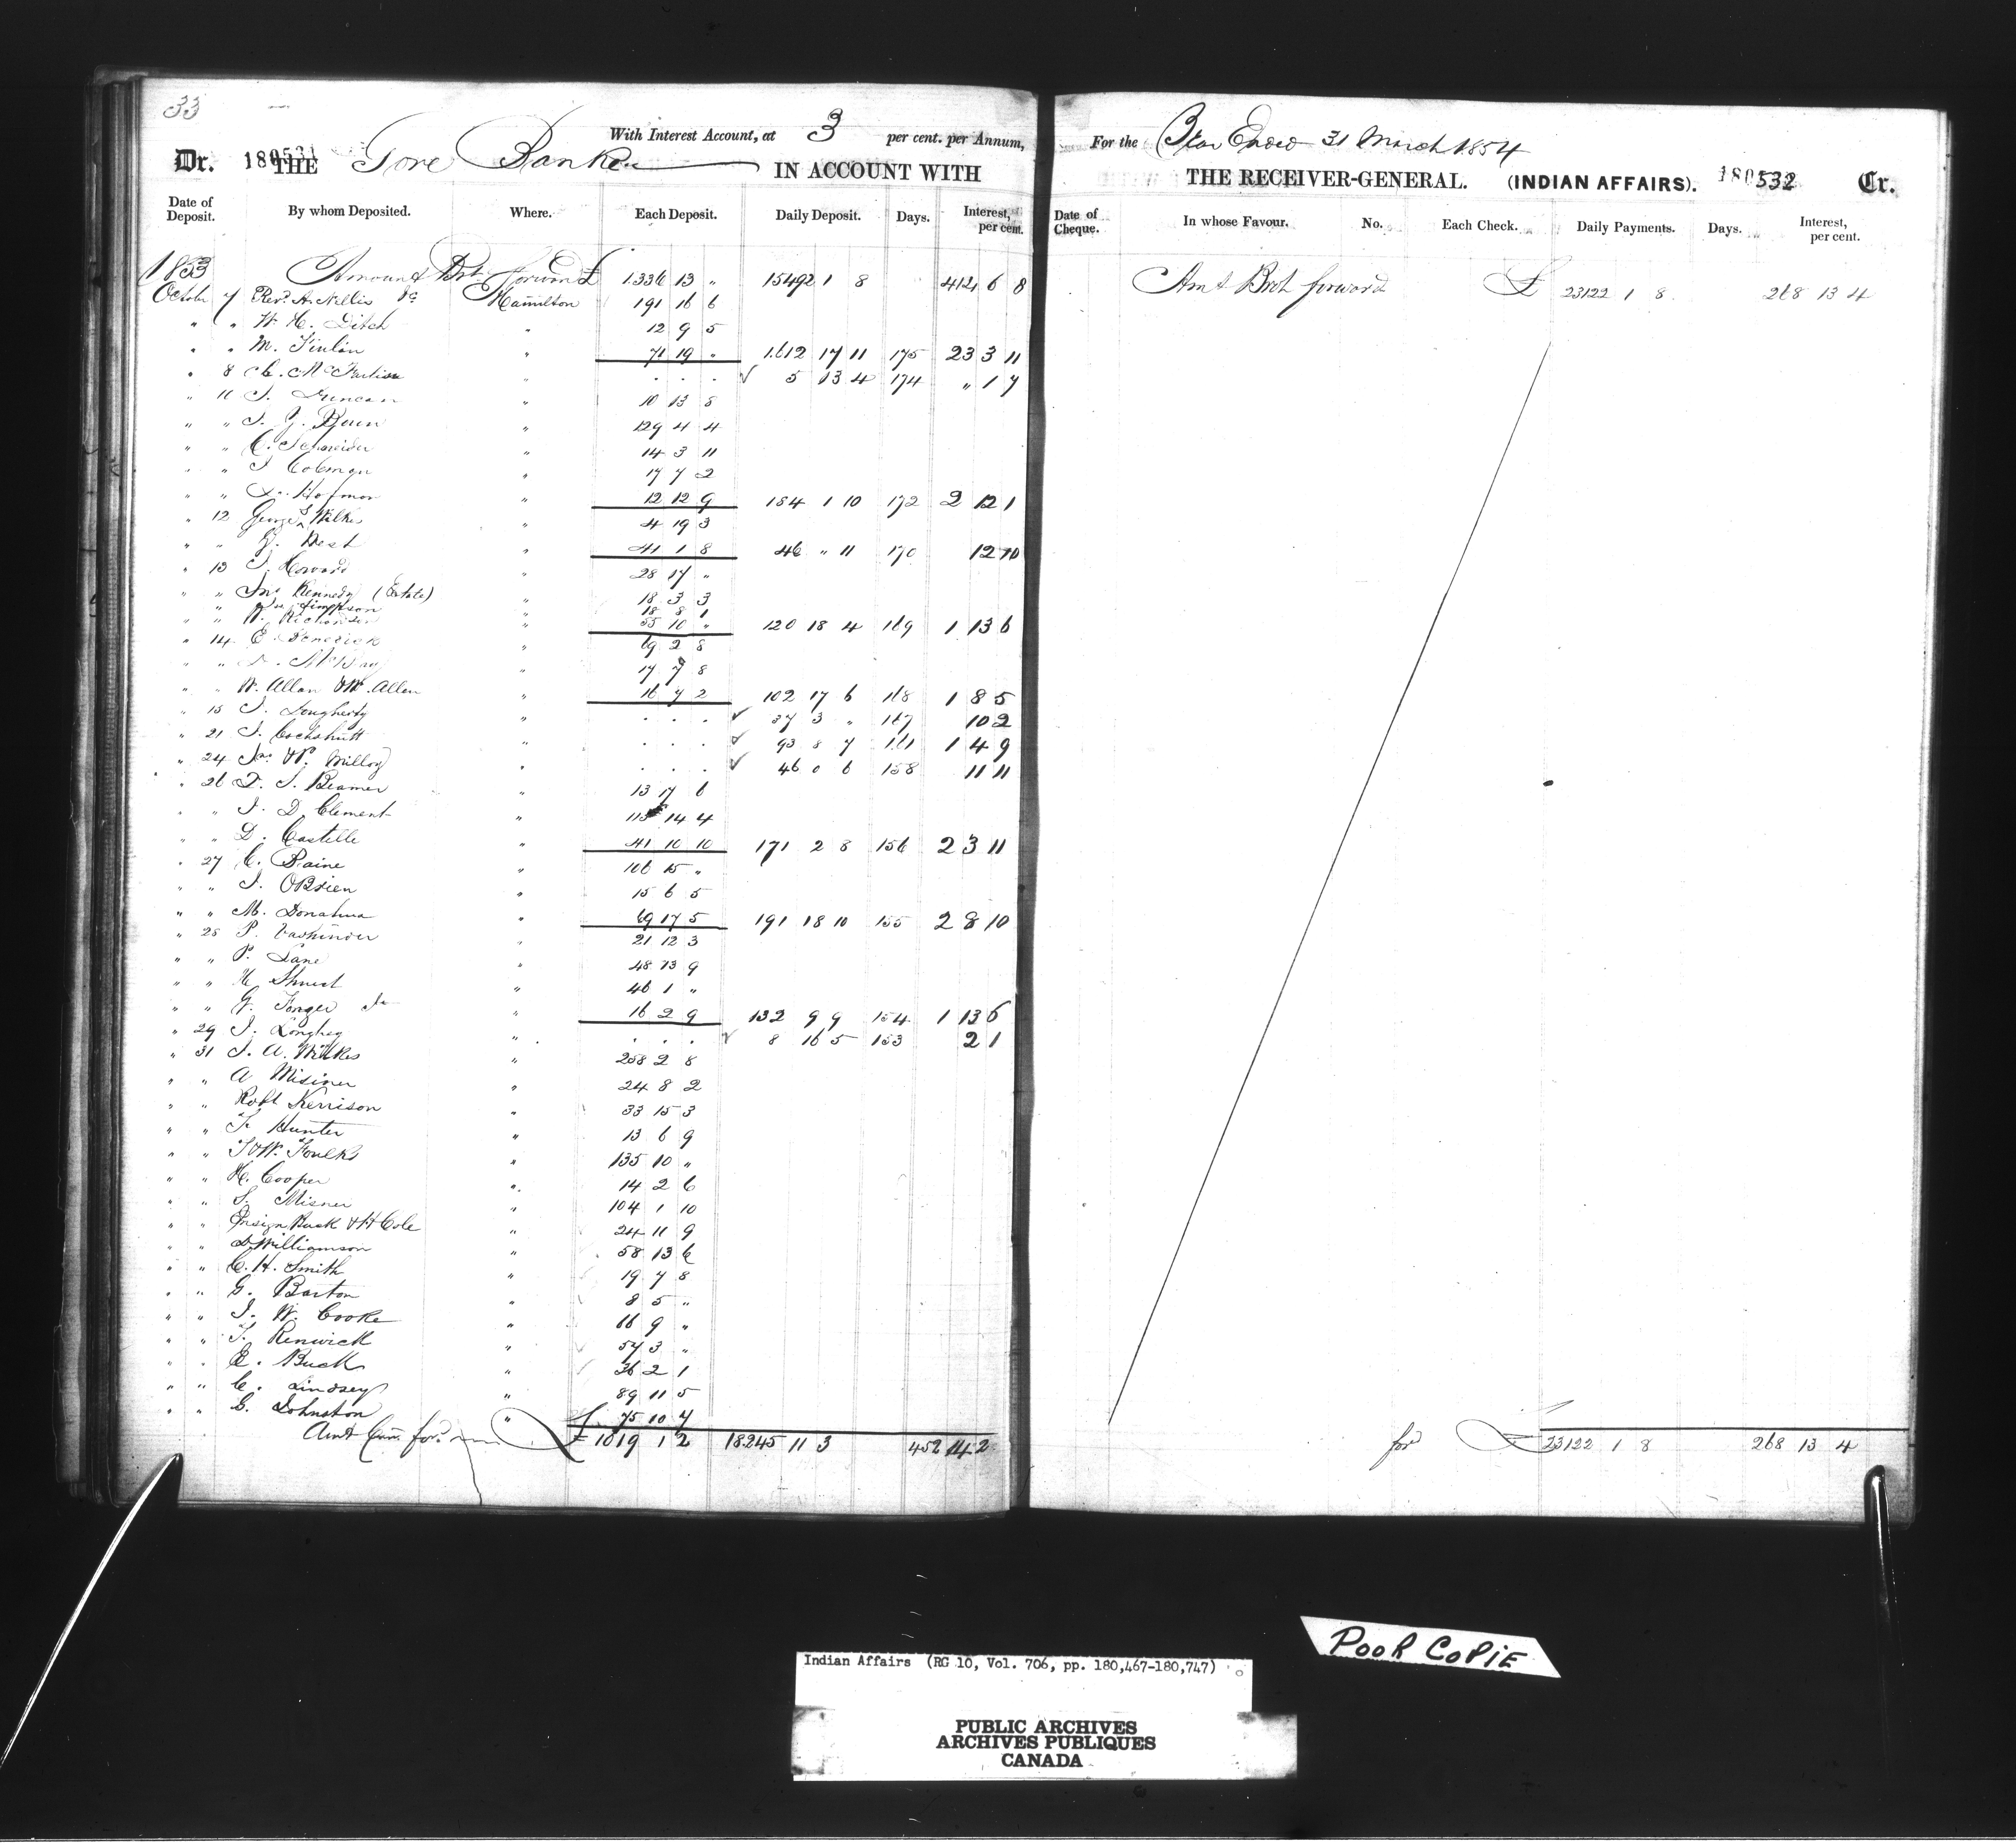 33
With Interest Account, at 3 per cent. per Annum,
Dr. 180531 THE Gore Bank IN ACCOUNT WITH
Date of Deposit. By whom Deposited. Where. Each Deposit. Daily Deposit. Days. Interest, per cent.
1853 Amount Brt. forward £ 1336 13 " 15492 1 8 412 6 8
October 7 Revd. A. Nellis &c Hamilton 191 16 6
" " W. H. Ditch " 12 9 5
" " M. Finlan " 71 19 " 1612 17 11 175 23 3 11
" 8 " . . . ✓ 5 13 4 174 " 1 7
" 11 J. Duncan " 10 13 8
" " " 129 4 4
" " C. Schneider " 14 3 11
" " J Colman " 17 7 2
" " Hofman " 12 12 9 184 1 10 172 2 12 1
" 12 George S Wilkes " 4 19 3
" " G. West " 41 1 8 46 " 11 170 12 10
" 13 J. Howard " 28 17 "
" " Jno Kennedy (Estate) " 18 3 3
" " Simpson " 18 8 1
" " W. Richardson " 55 10 " 120 18 4 169 1 13 6
" 14 E. " 69 2 8
" " McKay " 17 7 8
" " W. Allan & W. Allen " 16 7 2 102 17 6 168 1 8 5
" 15 J. Dougherty " . . . ✓ 37 3 " 167 10 2
" 21 J. Cockshutt " . . . ✓ 93 8 7 161 1 4 9
" 24 Jno & P. Milloy " . . . ✓ 46 0 6 158 11 11
" 26 D. J. Beamer " 13 17 6
" " J. D. Clement " 115 14 4
" " D. Costello " 41 10 10 171 2 8 156 2 3 11
" 27 C. Raine " 106 15 "
" " J. OBrien " 15 6 5
" " M. Donahua " 69 17 5 191 18 10 155 2 8 10
" 28 P. " 21 12 3
" " P. Lane " 48 13 9
" " H " 46 1 "
" " G. Fonger " 16 2 9 132 9 9 154 1 13 6
" 29 J. Longhey " . . . ✓ 8 16 5 153 2 1
" 31 J. A. Wilkes " 258 2 8
" " A Misiner " 24 8 2
" " Robt Kerrison " 33 15 3
" " F. Hunter " 13 6 9
" " J & W. Foulks " 135 10 "
" " H. Cooper " 14 2 6
" " S. Misner " 104 1 10
" " Ensign Buck & H Cole " 24 11 9
" " D Williamson " 58 13 6
" " C. H. Smith " 19 7 8
" " G. Barton " 8 5 "
" " J. W. Cooke " 66 9 "
" " J. Renwick " 57 3 "
" " E. Buck " 36 2 1
" " C. Lindsey " 89 11 5
" " G. Johnston " 75 10 7
Amt Carr. ford £ 1019 1 2 18245 11 3 452 14 2
For the Year Ended 31 March 1854
THE RECEIVER-GENERAL. (INDIAN AFFAIRS). 180532 Cr.
Date of Cheque. In whose Favour. No. Each Check. Daily Payments. Days. Interest, per cent.
Amt Brot forward £ 23122 1 8 268 13 4
ford £ 23122 1 8 268 13 4
POOR COPIE
Indian Affairs (RG 10, Vol. 706, pp. 180,467-180,747)
PUBLIC ARCHIVES
ARCHIVES PUBLIQUES
CANADA